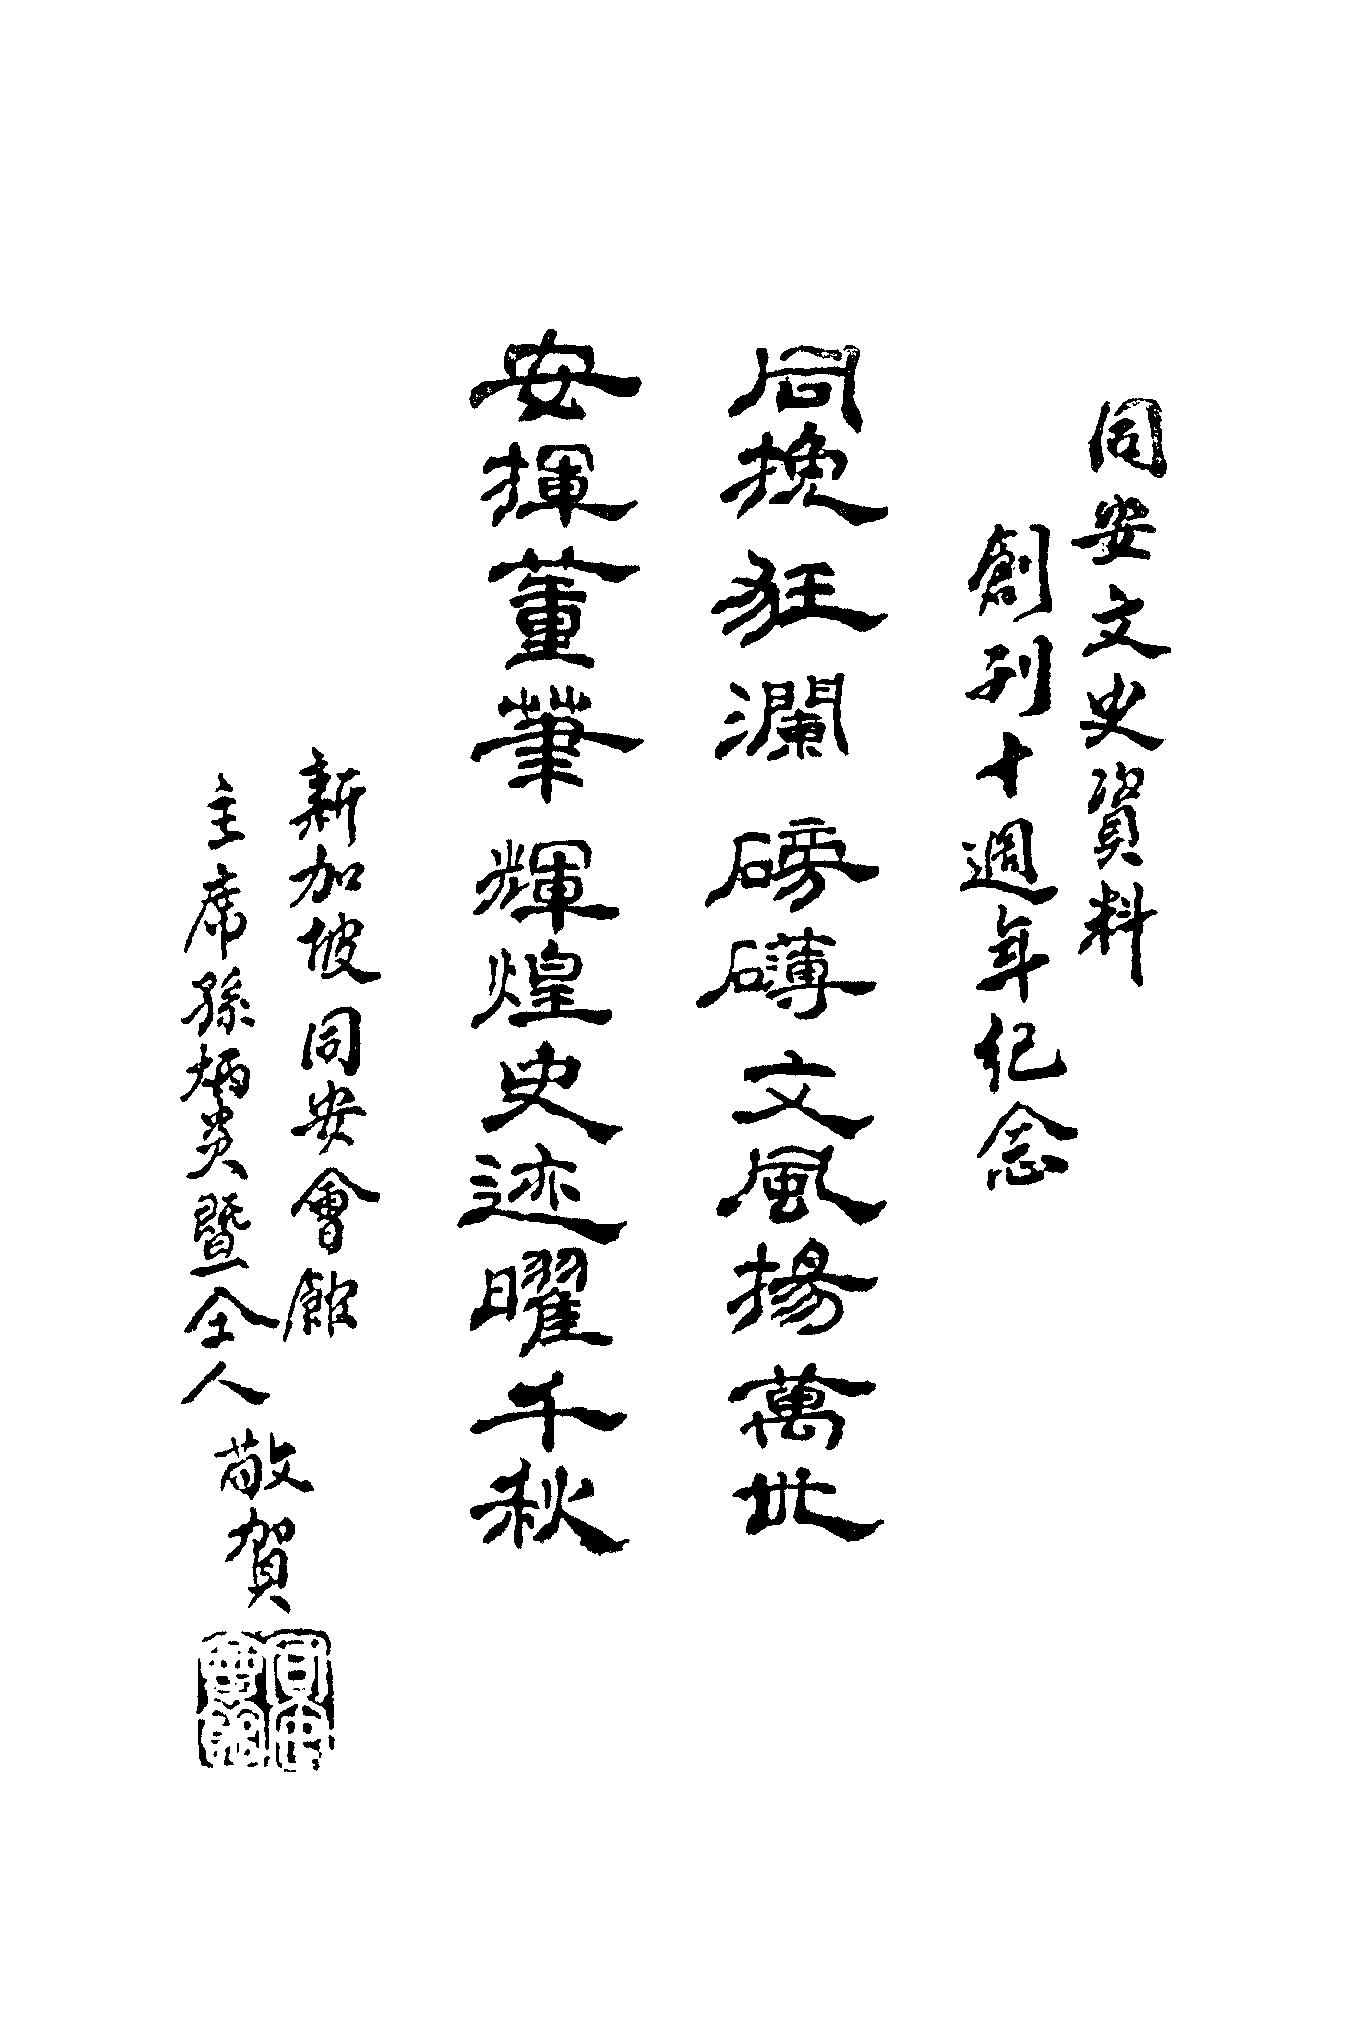 同安文史資料
創刊十週年纪念
同挽狂瀾磅礴文風揚萬世
安揮董筆輝煌史迹曜千秋
新加坡同安會館
主席孫炳炎暨仝人
敬賀